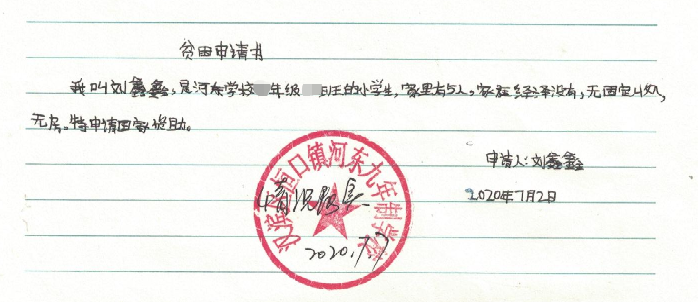 贫困申请书
我叫刘鑫鑫,是河东学校 年级 班的小学生,家里有5人,家庭经济没有,无固定收入,
无房。特申请国家资助。
申请人:刘鑫鑫
2020年7月2日
汉滨区恒口镇河东九年制学校
情况属实
2020.7.7